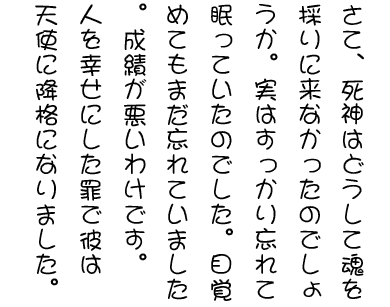 さて、死神はどうして魂を
採りに来なかったのでしょ
うか。実はすっかり忘れて
眠っていたのでした。目覚
めてもまだ忘れていました
。成績が悪いわけです。
人を幸せにした罪で彼は
天使に降格になりました。